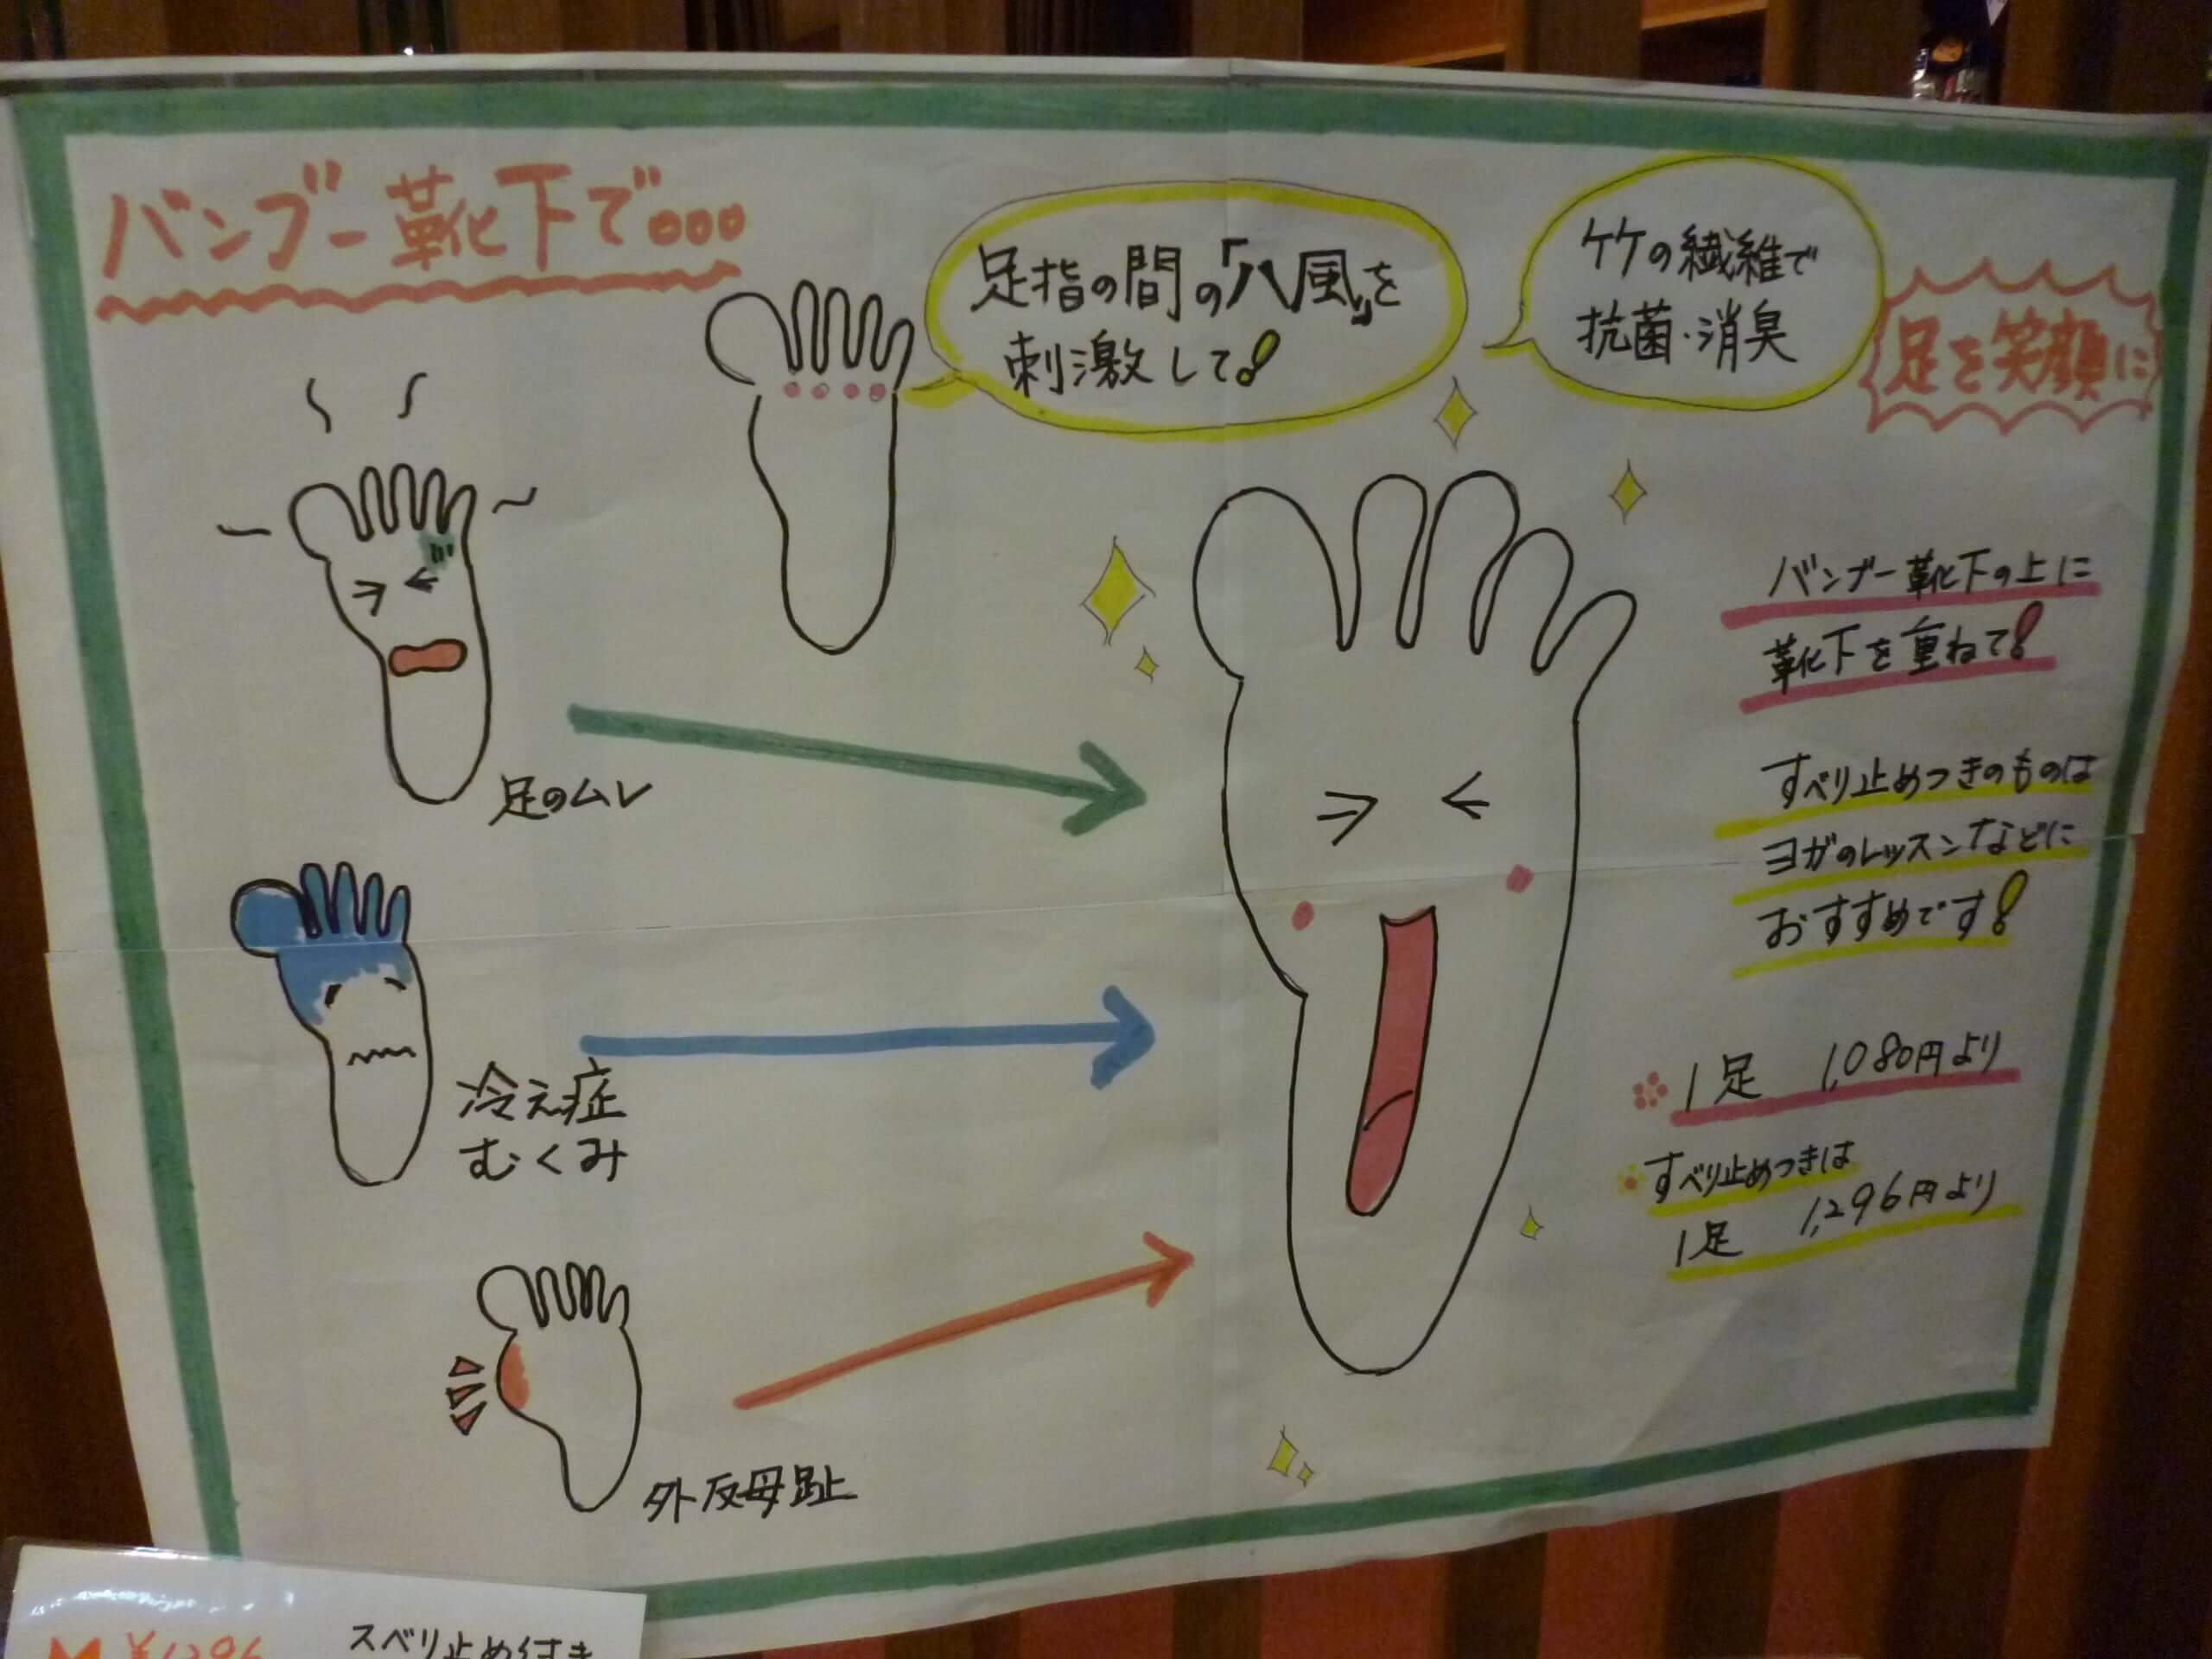 バンブー靴下で。。。
足指の間の「八風」を
刺激して!
竹の繊維で
抗菌・消臭
足を笑顔に
足のムレ
冷え症
むくみ
外反母趾
バンブー靴下の上に
靴下を重ねて!
すべり止めつきのものは
ヨガのレッスンなどに
おすすめです!
1足 1,080円より
すべり止めつきは
1足 1,296円より
¥1296
スベリ止め付き